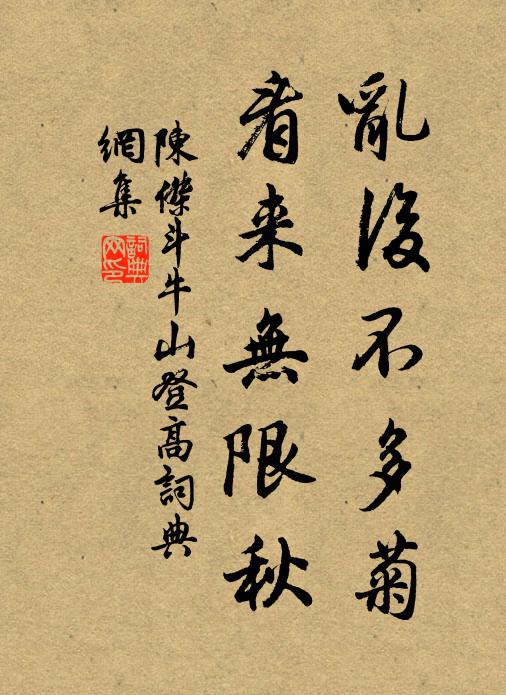 亂後不多菊
看来無限秋
陳傑斗牛山登高詞典
網集
詞典網印